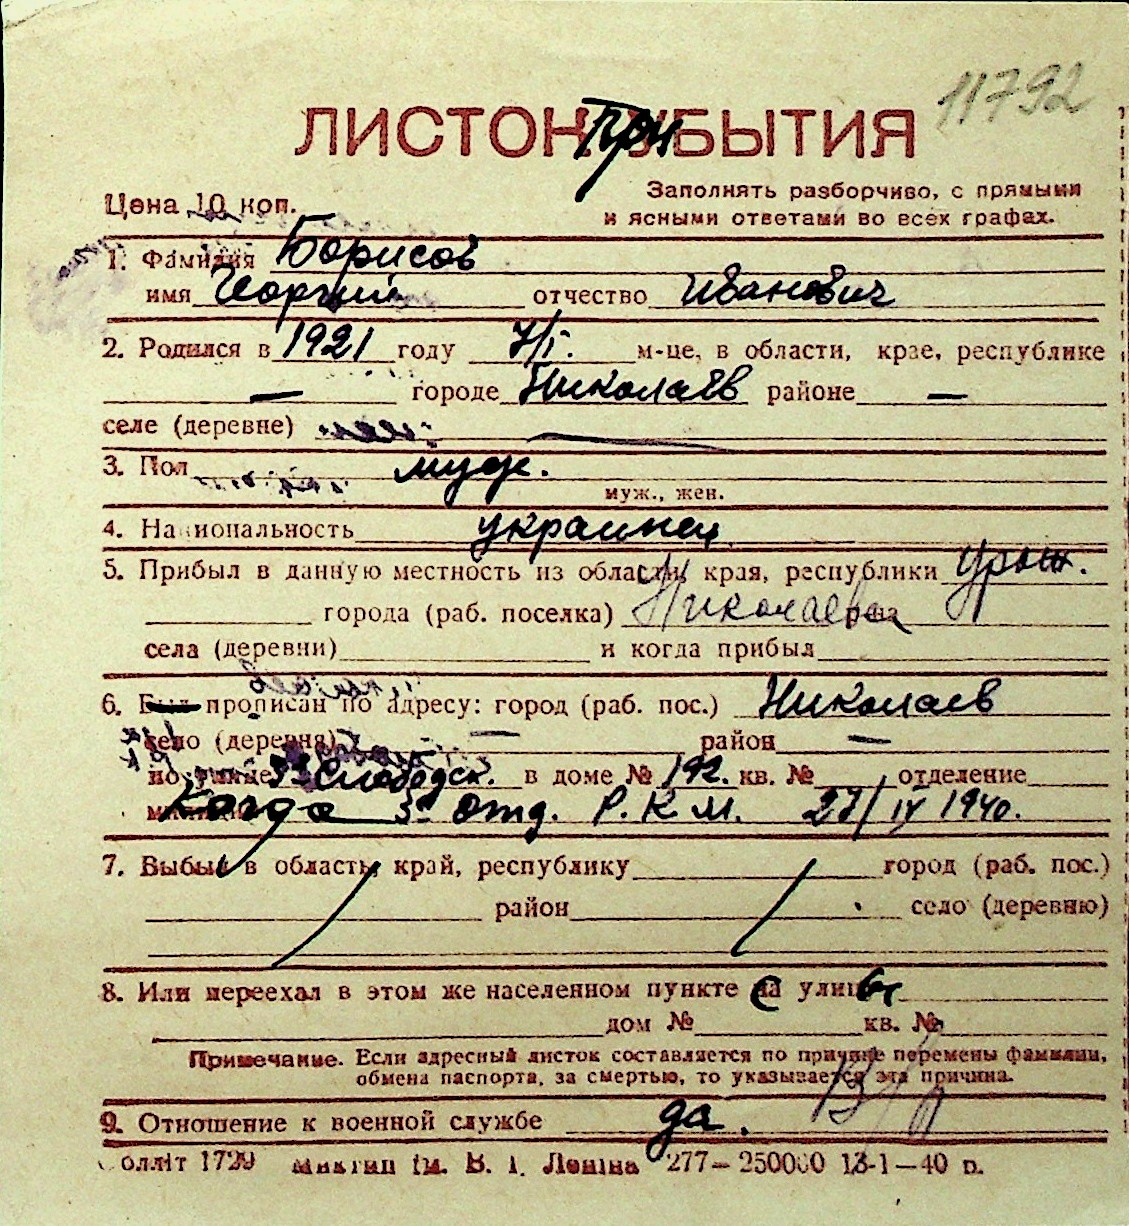 11792
ЛИСТОК УБЫТИЯ
При
Цена 10 коп.
Заполнять разборчиво, с прямыми
и ясными ответами во всех графах.
1. Фамилия Борисов
имя Георгий отчество Иванович
2. Родился в 1921 году 7/I. м-це, в области, крае, республике
— городе Николаев районе —
селе (деревне) —
3. Пол муж.
муж., жен.
4. Национальность украинец
5. Прибыл в данную местность из области, края, республики урож.
города (раб. поселка) Николаева
села (деревни) и когда прибыл
6. Был прописан по адресу: город (раб. пос.) Николаев
село (деревня) — район —
по улице Слободск. в доме № 192. кв. № отделение
милиции Когда 3е отд. Р.К.М. 27/IV 1940.
7. Выбыл в область, край, республику город (раб. пос.)
район село (деревню)
8. Или переехал в этом же населенном пункте с улицы
дом № кв. №
Примечание. Если адресный листок составляется по причине перемены фамилии,
обмена паспорта, за смертью, то указывается эта причина.
9. Отношение к военной службе да.
оллiт 1729 iм. В. I. Ленiна 277—250000 13-1—40 р.